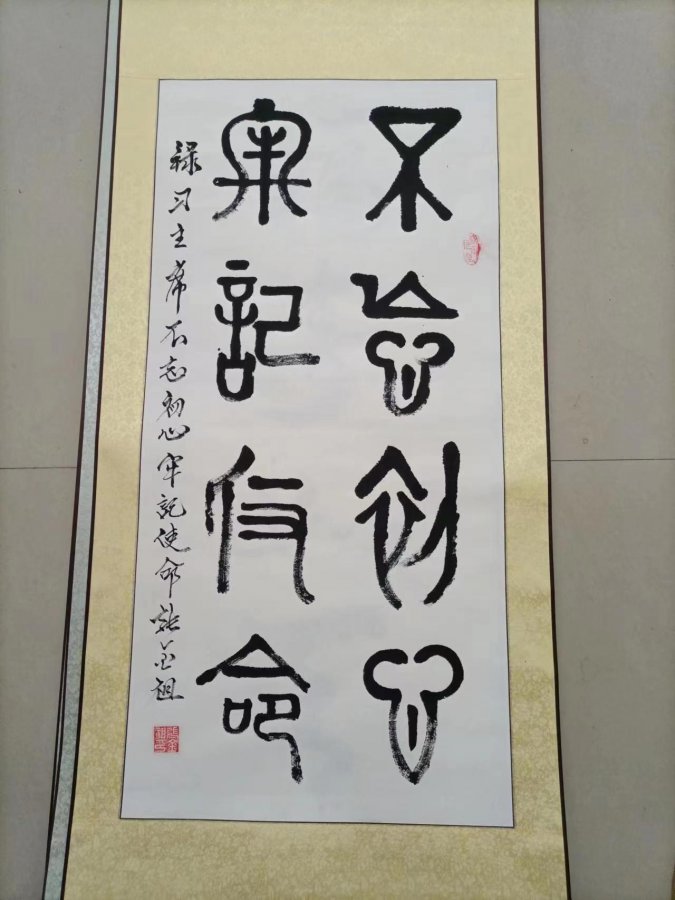 不忘初心
牢記使命
禄习主席不忘初心牢記使命张金祖